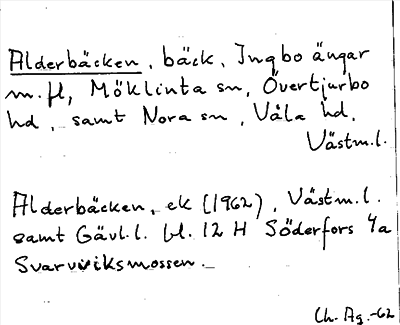 Alderbäcken, bäck, Ingbo ängar
m.fl, Möklinta sn, Övertjurbo
hd, samt Nora sn, Våla hd,
Västm.l.
Alderbäcken, ek (1962), Västm.l.
samt Gävl.l. bl. 12 H Söderfors
Svarvviksmossen.
Ch. Ag.-62